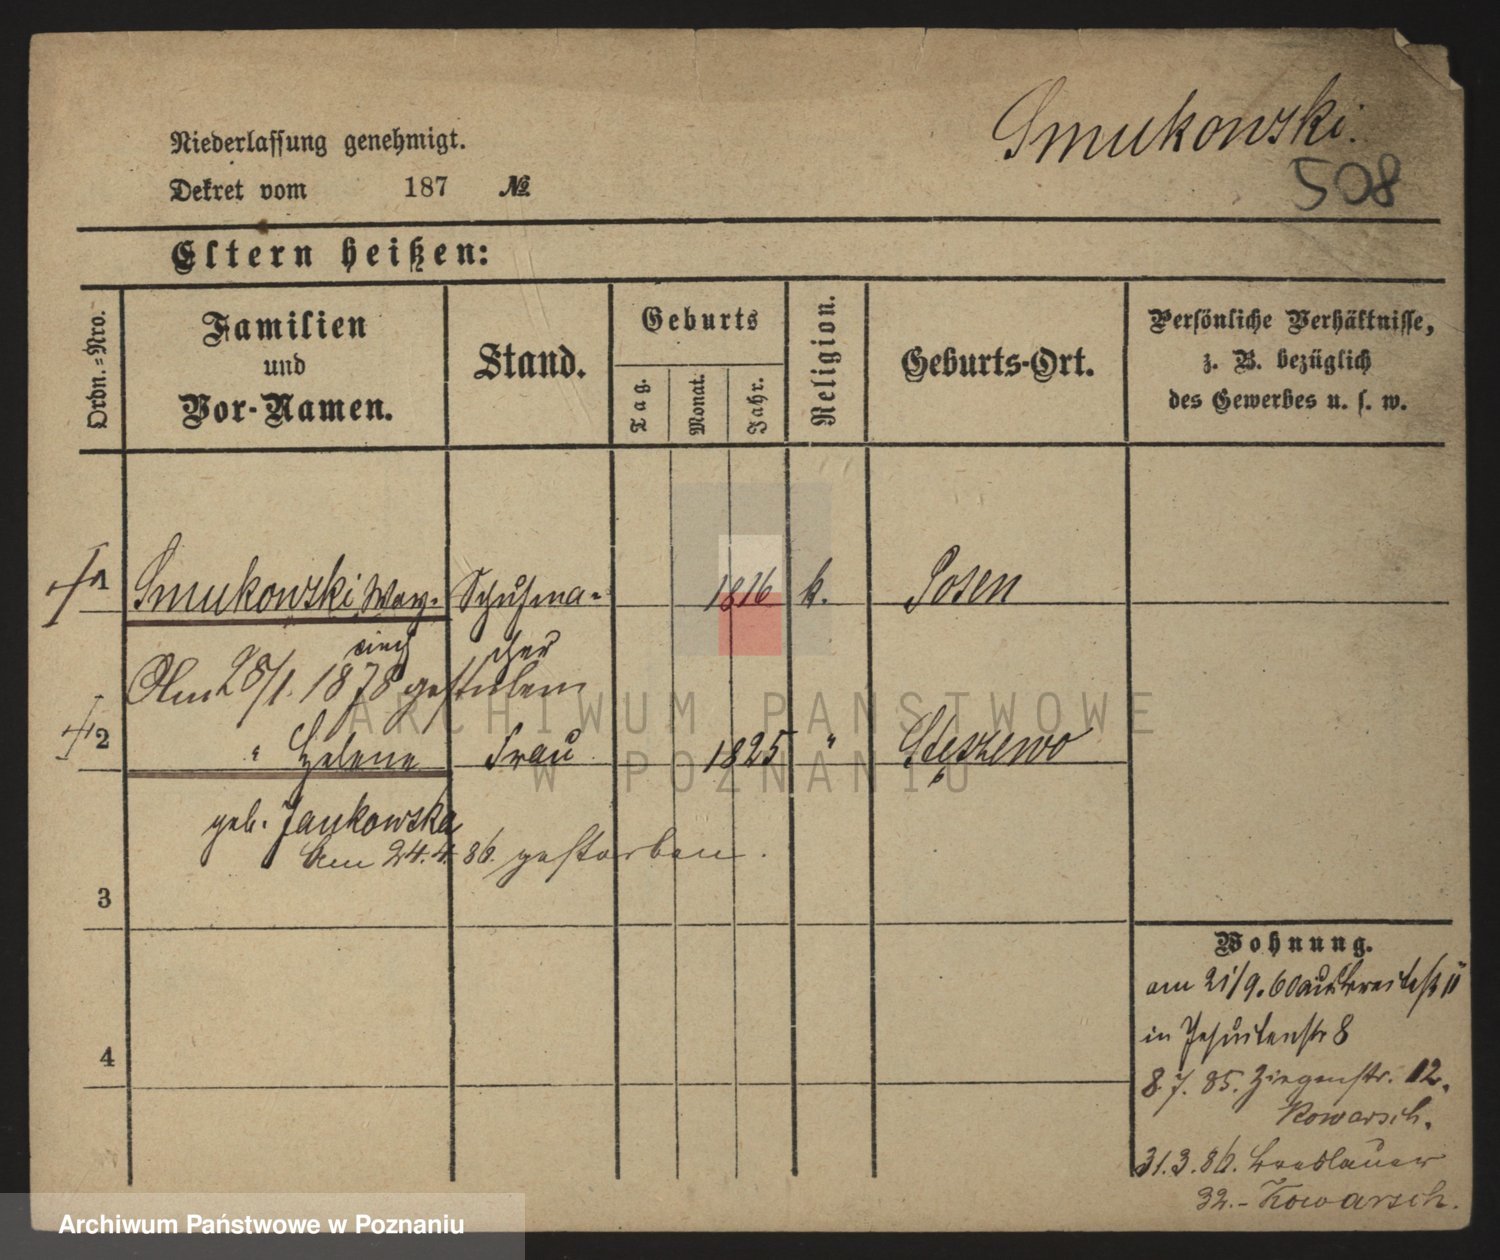 Niederlassung genehmigt.
Dekret vom 187 №
Smukowski.
508
Eltern heißen:
Ordn.-Nro.
Familien
und
Vor-Namen.
Stand.
Geburts
Tag.
Monat.
Jahr.
Religion.
Geburts-Ort.
Persönliche Verhältnisse,
z. B. bezüglich
des Gewerbes u. s. w.
1 Smukowski Way- Schuhma- 1816 k. Posen
cher
Am 28/1. 1878 gestorben
2 " Helene Frau 1825 " Stęszewo
geb. Jankowska
Am 24.4.86. gestorben.
3
4
Wohnung.
am 21/9.60 aus Breitestr 11
in Jesuitenstr 8
8.7.85. Ziegenstr. 12.
Kowarsch.
31.3.86. Breslauer
32.- Kowarsch.
ARCHIWUM PAŃSTWOWE
W POZNANIU
Archiwum Państwowe w Poznaniu